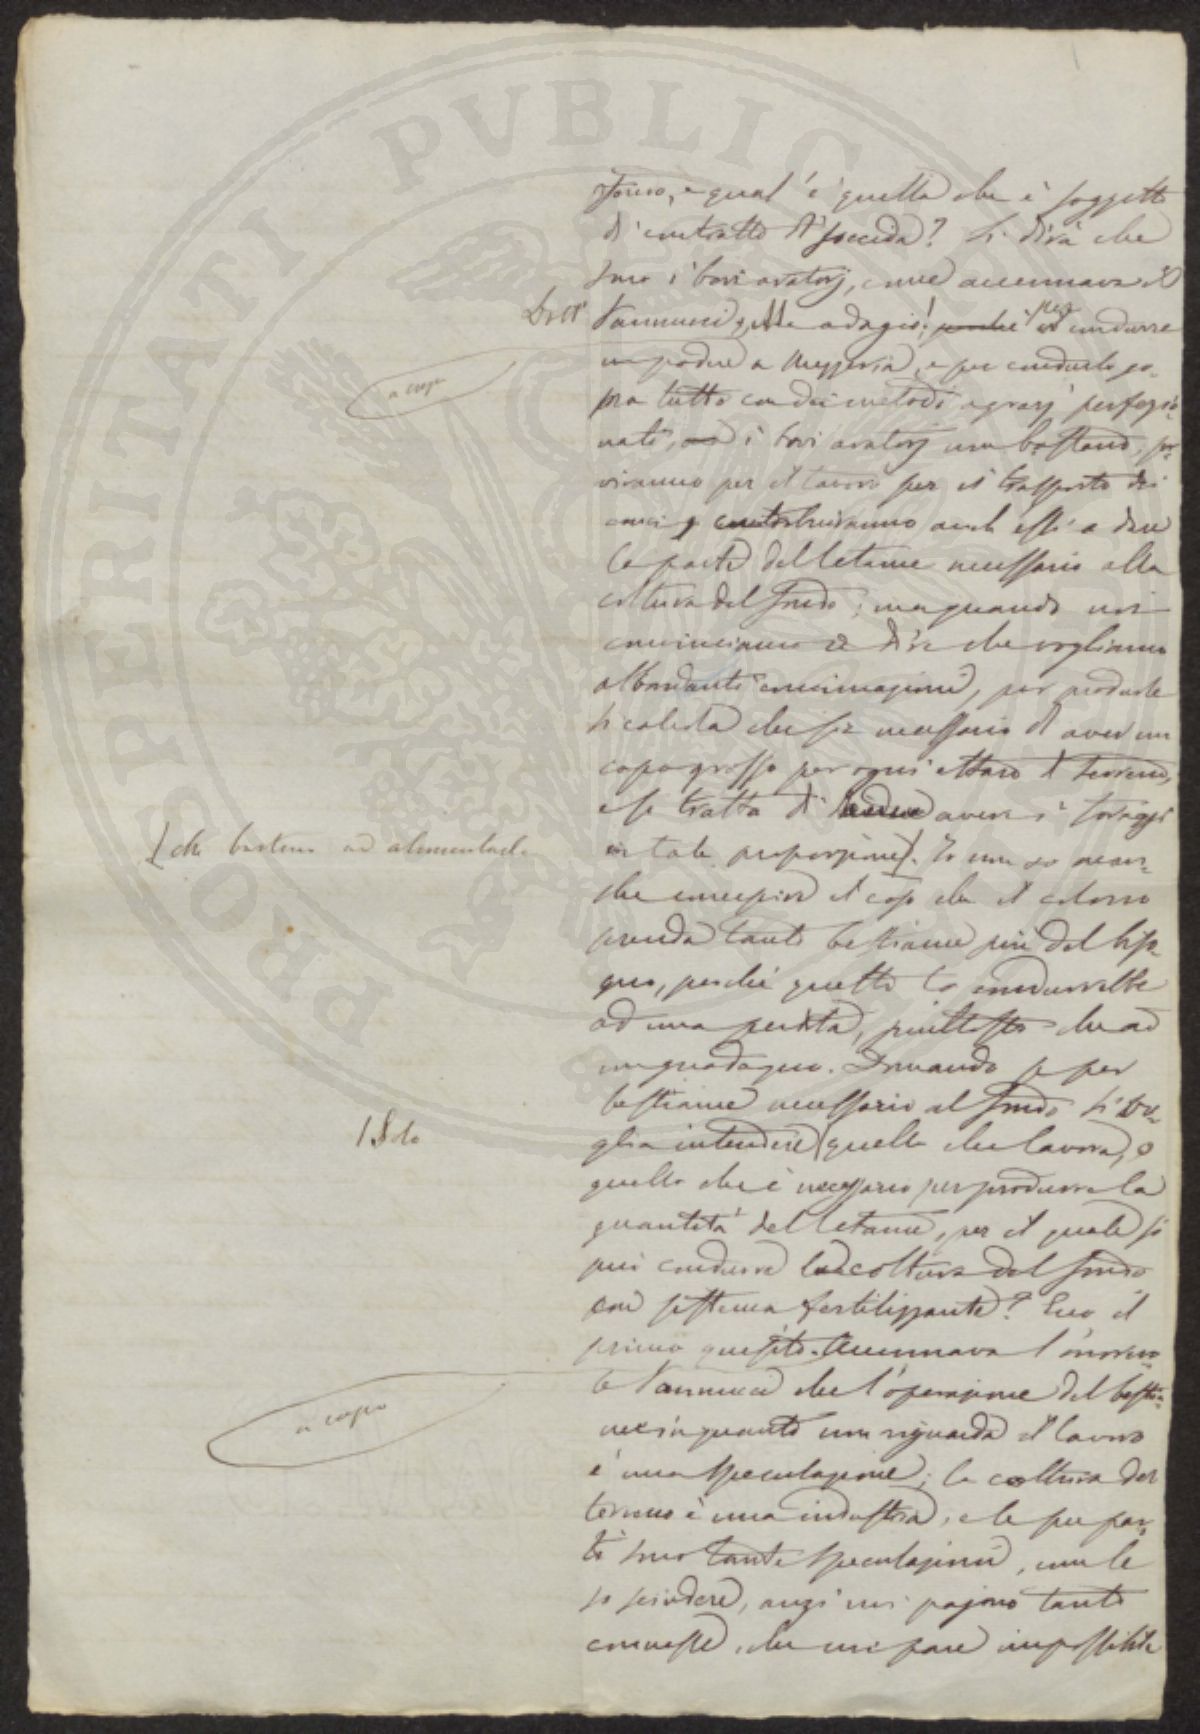 PROSPERITATI PUBLICAE
e qual'è quella che è soggetto
di contratto di soccida? Si dirà che
sono i bovi aratorj, come accennava il
Dott.r Vannucci, adagio! perché per condurre
un podere a mezzeria, e per condurlo so-
a capo
pra tutto con dei metodi agrarj perfezio-
nati, i bovi aratorj non bastano; ser-
viranno per il lavoro per il trasporto dei
conci, contribuiranno anch'essi a dare
la parte del letame necessario alla
coltura del fondo; ma quando noi
cominciamo a dire che vogliamo
abbondanti concimazioni, per produrle
si calcola che sia necessario di aver un
capo grosso per ogni ettaro di terreno,
e si tratta di avere i foraggi
in tale proporzione. Io non so nean-
che bastino ad alimentarle
che concepire il caso che il colono
prenda tanto bestiame più del biso-
gno, perché questo lo condurrebbe
ad una perdita, piuttosto che ad
un guadagno. Domando se per
bestiame necessario al fondo si vo-
glia intendere quello che lavora, o
Solo
quello che è necessario per produrre la
quantità del letame, per il quale si
può condurre la coltura del fondo
con sistema fertilizzante? Ecco il
primo quesito. Accennava l'onorevo-
le Vannucci che l'operazione del bestia-
a capo
me in quanto non riguarda il lavoro
è una speculazione; la coltura del
terreno è una industria, e le sue par-
ti sono tante speculazioni, non le
so scindere, anzi mi pajono tanto
connesse, che mi pare impossibile